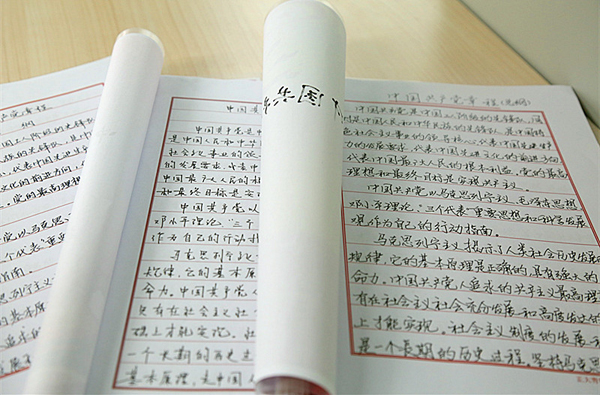 产党章程
纲
国工人阶级的先锋队
党的最高理想
中国共
中国共产党是中
是中国人民和中华
社会主义事业的领
的发展要求,代表中
中国最广大人民的根
和最终目标是实
中国共产党以
邓小平理论、"三个
作为自己的行动指
马克思列宁主
规律,它的基本原
命力。中国共产党
只有在社会主义社
础上才能实现。社
一个长期的历史过
基本原理,走中国人
共国
中国共产党章程(总纲)
中国共产党是中国工人阶级的先锋队,同
时是中国人民和中华民族的先锋队,是中国特
色社会主义事业的领导核心,代表中国先进生产
力的发展要求,代表中国先进文化的前进方向
代表中国最广大人民的根本利益。党的最高
理想和最终目标是实现共产主义。
中国共产党以马克思列宁主义、毛泽东思想
邓小平理论、"三个代表"重要思想和科学发展
观作为自己的行动指南。
马克思列宁主义揭示了人类社会历史发展的
规律,它的基本原理是正确的,具有强大的生
命力。中国共产党人追求的共产主义最高理想
有在社会主义社会充分发展和高度发达的
上才能实现。社会主义制度的发展
是一个长期的历史过程。坚持马克思